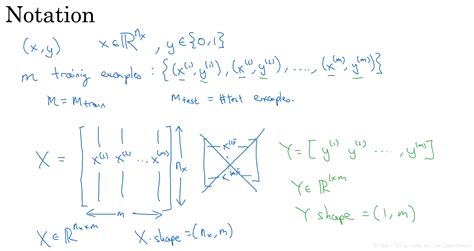 Notation
(x, y)   x ∈ ℝ^{n_x}, y ∈ {0,1}
m training examples : {(x^{(1)}, y^{(1)}), (x^{(2)}, y^{(2)}), ...., (x^{(m)}, y^{(m)})}
M = M_train   M_test = # test examples.
X = [ x^{(1)} x^{(2)} ... x^{(m)} ] n_x
m
Y = [ y^{(1)} y^{(2)} .... y^{(m)} ]
Y ∈ ℝ^{1×m}
Y.shape = (1, m)
X ∈ ℝ^{n_x × m}   X.shape = (n_x, m)